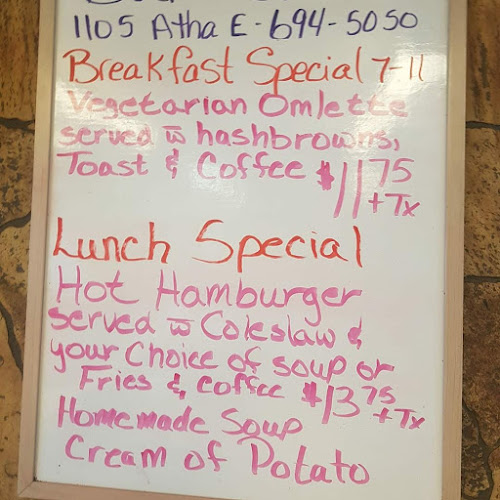 1105 Atha E - 694-5050
Breakfast Special 7-11
Vegetarian Omlette
served w hashbrowns,
Toast & Coffee $11.75
+ Tx
Lunch Special
Hot Hamburger
served w Coleslaw &
your Choice of soup or
Fries & coffee $13.75
+ Tx
Homemade Soup
Cream of Potato